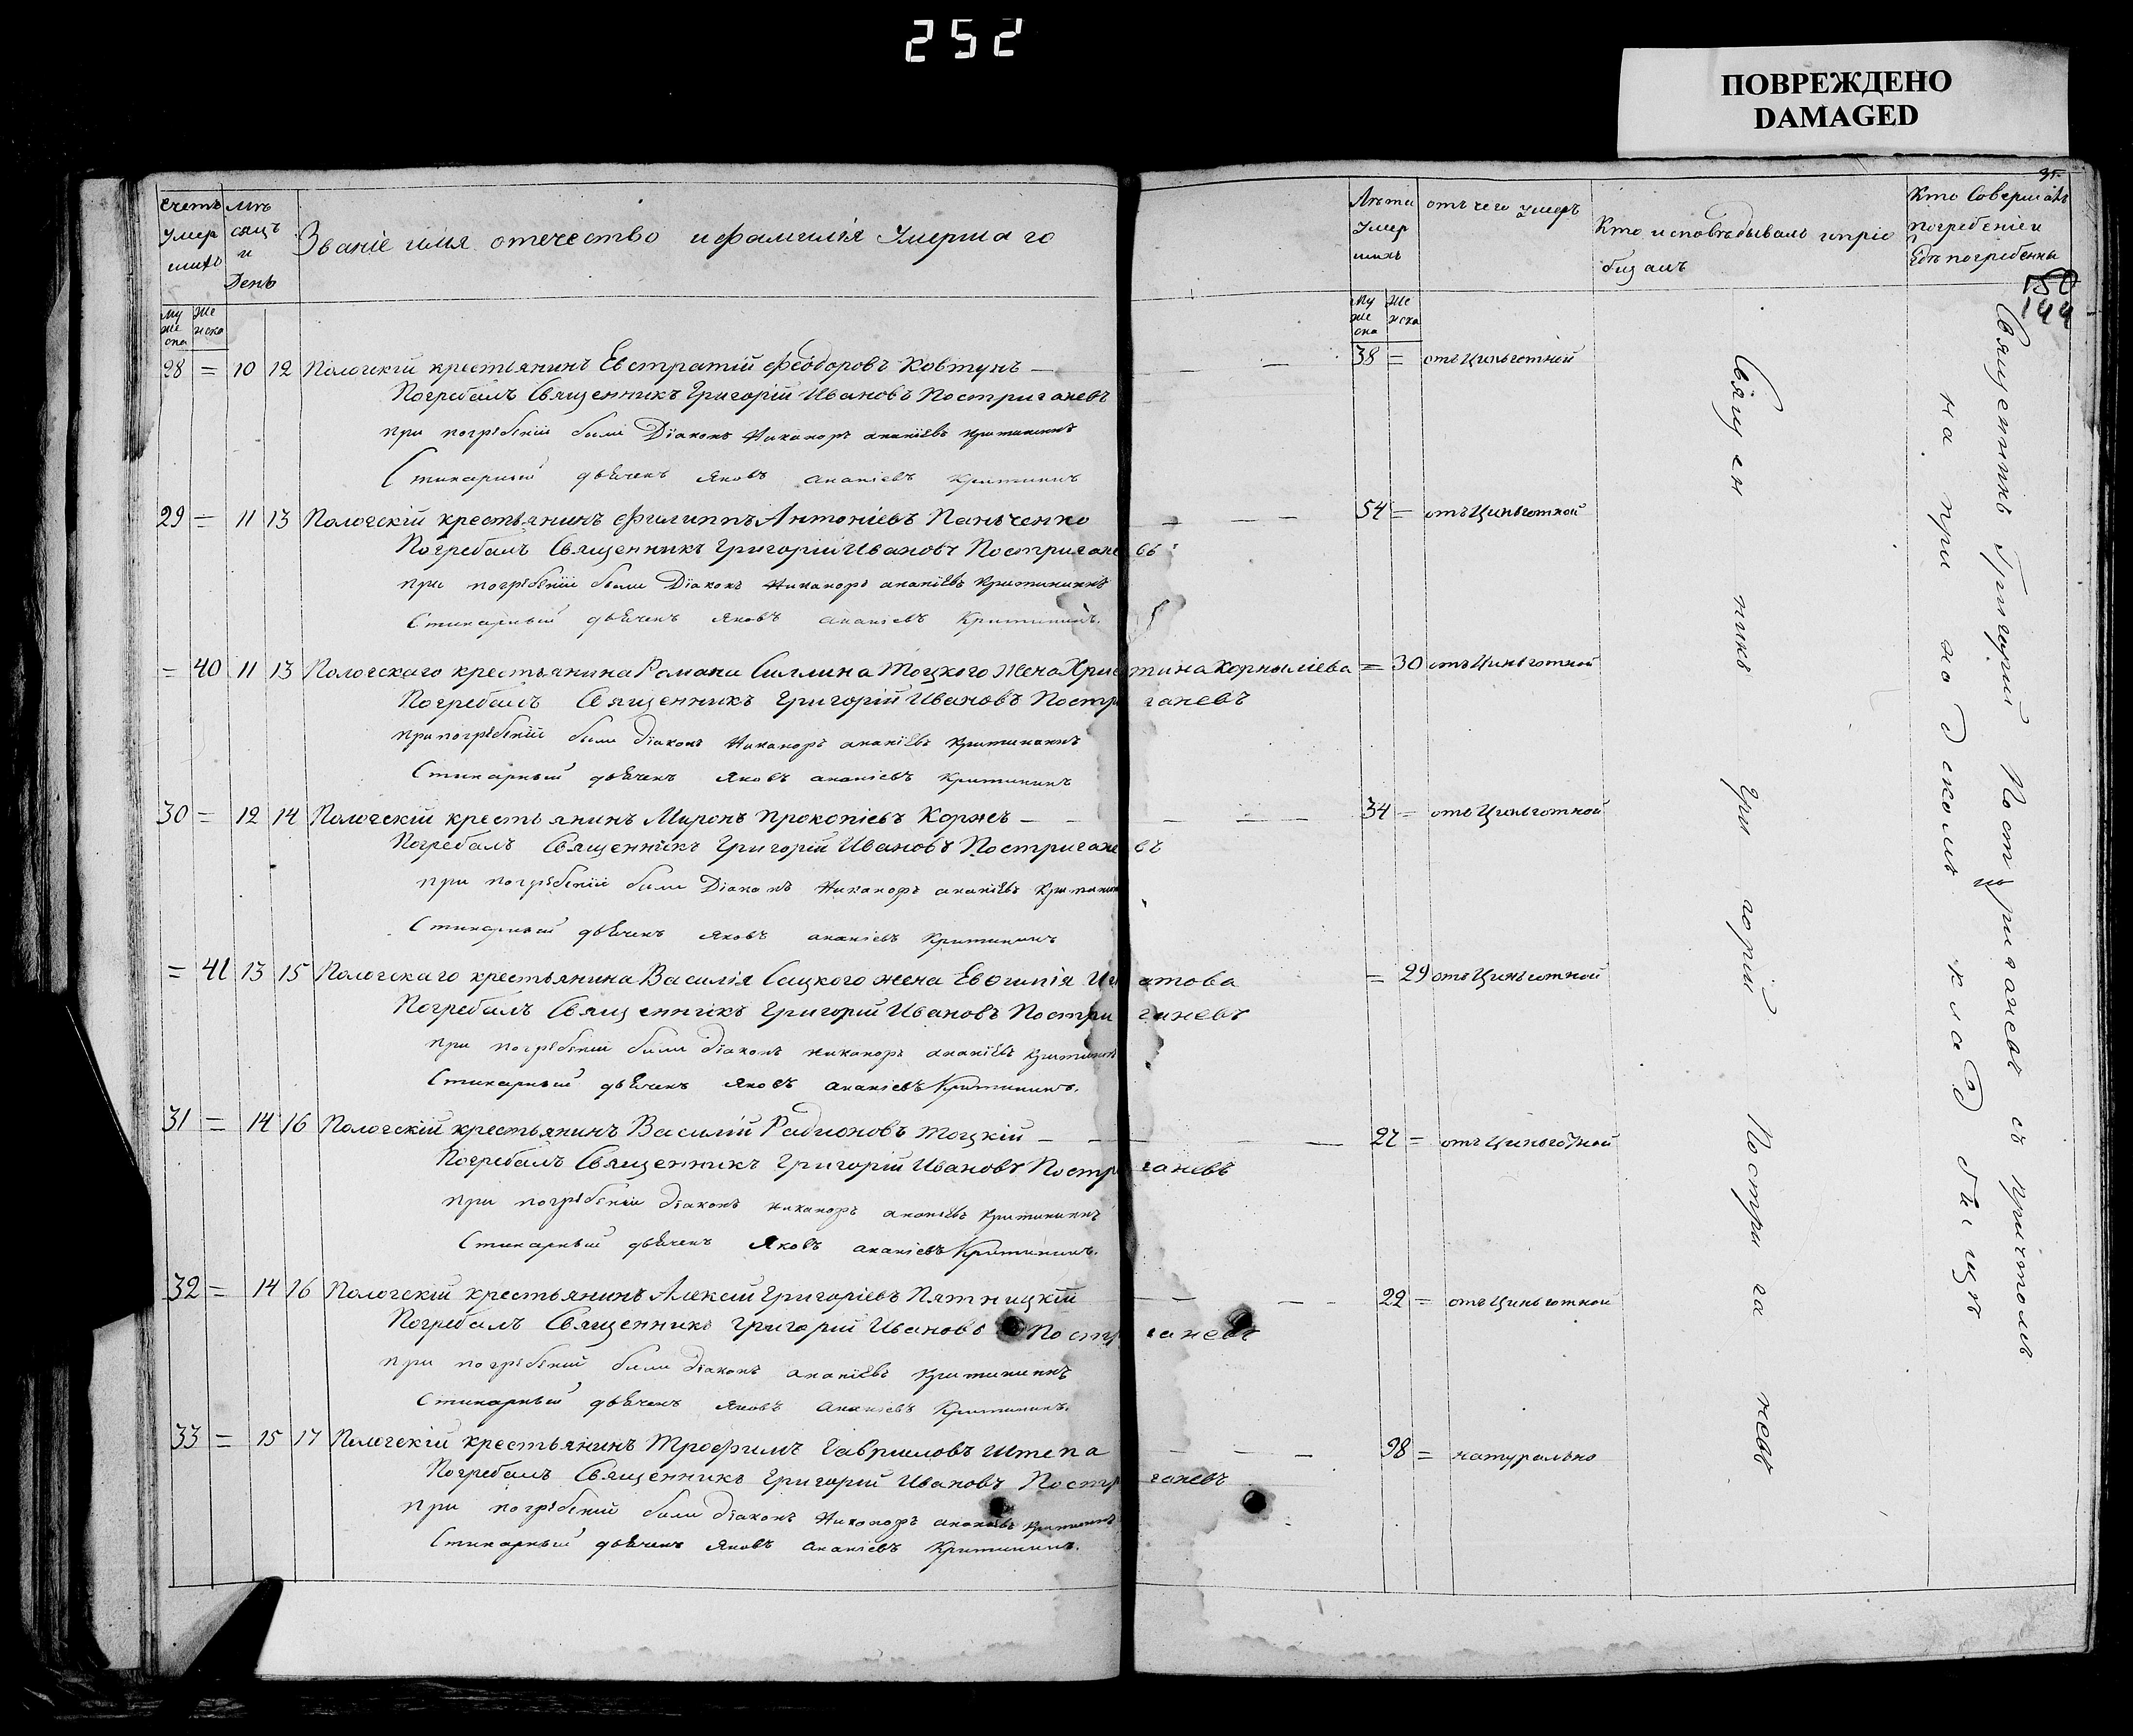 252
ПОВРЕЖДЕНО
DAMAGED
Счетъ умер шихъ
Мѣсяцъ и День
Званіе имя отечество и фамилія Умершаго
Лѣта Умер шихъ
отъ чего умеръ
Кто исповѣдывалъ и пріобщалъ
Кто Совершалъ погребеніе и Гдѣ погребенны
150
144
Му жеска Же нска
Му жеска Же нска
28 = 10 12 Пологскій крестьянинъ Евстратій Феодоровъ Ковтунъ — — — 38 = отъ Циньготной
Погребалъ Священникъ Григорій Ивановъ Постригачевъ
при погрѣбеніи были Діаконъ Никаноръ ананіевъ Критининъ
Стихарный дьячекъ Яковъ ананіевъ Критининъ
29 = 11 13 Пологскій крестьянинъ Филиппъ Антоніевъ Панченко — — — 54 = отъ Циньготной
Погребалъ Священникъ Григорій Ивановъ Постригачевъ
при погрѣбеніи были Діаконъ Никаноръ ананіевъ Критининъ
Стихарный дьячекъ Яковъ ананіевъ Критининъ.
= 40 11 13 Пологскаго крестьянина Романа Силлина Тоцкого Жена Христина Корныліева = 30 отъ Циньготной
Погребалъ Священникъ Григорій Ивановъ Постригачевъ
при погрѣбеніи были діаконъ Никаноръ ананіевъ Критининъ
Стихарный дьячекъ Яковъ ананіевъ Критининъ
30 = 12 14 Пологскій крестьянинъ Миронъ Прокопіевъ Коржъ — — — 34 = отъ Циньготной
Погребалъ Священникъ Григорій Ивановъ Постригачевъ
при погрѣбеніи были Діаконъ Никаноръ ананіевъ Критининъ
Стихарный дьячекъ Яковъ ананіевъ Критининъ
= 41 13 15 Пологскаго крестьянина Василія Сацкого жена Евфимія Игнатова = 29 отъ Циньготной
Погребалъ Священникъ Григорій Ивановъ Постригачевъ
при погрѣбеніи были діаконъ никаноръ ананіевъ Критининъ
Стихарный дьячекъ Яковъ ананіевъ Критининъ.
31 = 14 16 Пологскій крестьянинъ Василій Радионовъ Тоцкій — — — 27 = отъ Циньготной
Погребалъ Священникъ Григорій Ивановъ Постригачевъ
при погрѣбеніи діаконъ никаноръ ананіевъ Критининъ
Стихарный дьячекъ Яковъ ананіевъ Критининъ.
32 = 14 16 Пологскій крестьянинъ Алексій Григоріевъ Пятницкій — — — 22 = отъ Циньготной
Погребалъ Священникъ Григорій Ивановъ Постригачевъ
при погрѣбеніи были діаконъ ананіевъ Критининъ
Стихарный дьячекъ Яковъ Ананіевъ Критининъ.
33 = 15 17 Пологскій крестьянинъ Трофимъ Гавриловъ Штепа — — — 98 = натурально
Погребалъ Священникъ Григорій Ивановъ Постригачевъ
при погрѣбеніи были діаконъ Никаноръ ананіевъ Критининъ
Стихарный дьячекъ Яковъ Ананіевъ Критининъ.
Священникъ Григорій Постригачевъ
Священникъ Григорій Постригачевъ съ причтомъ
на приходскомъ кладбищѣ